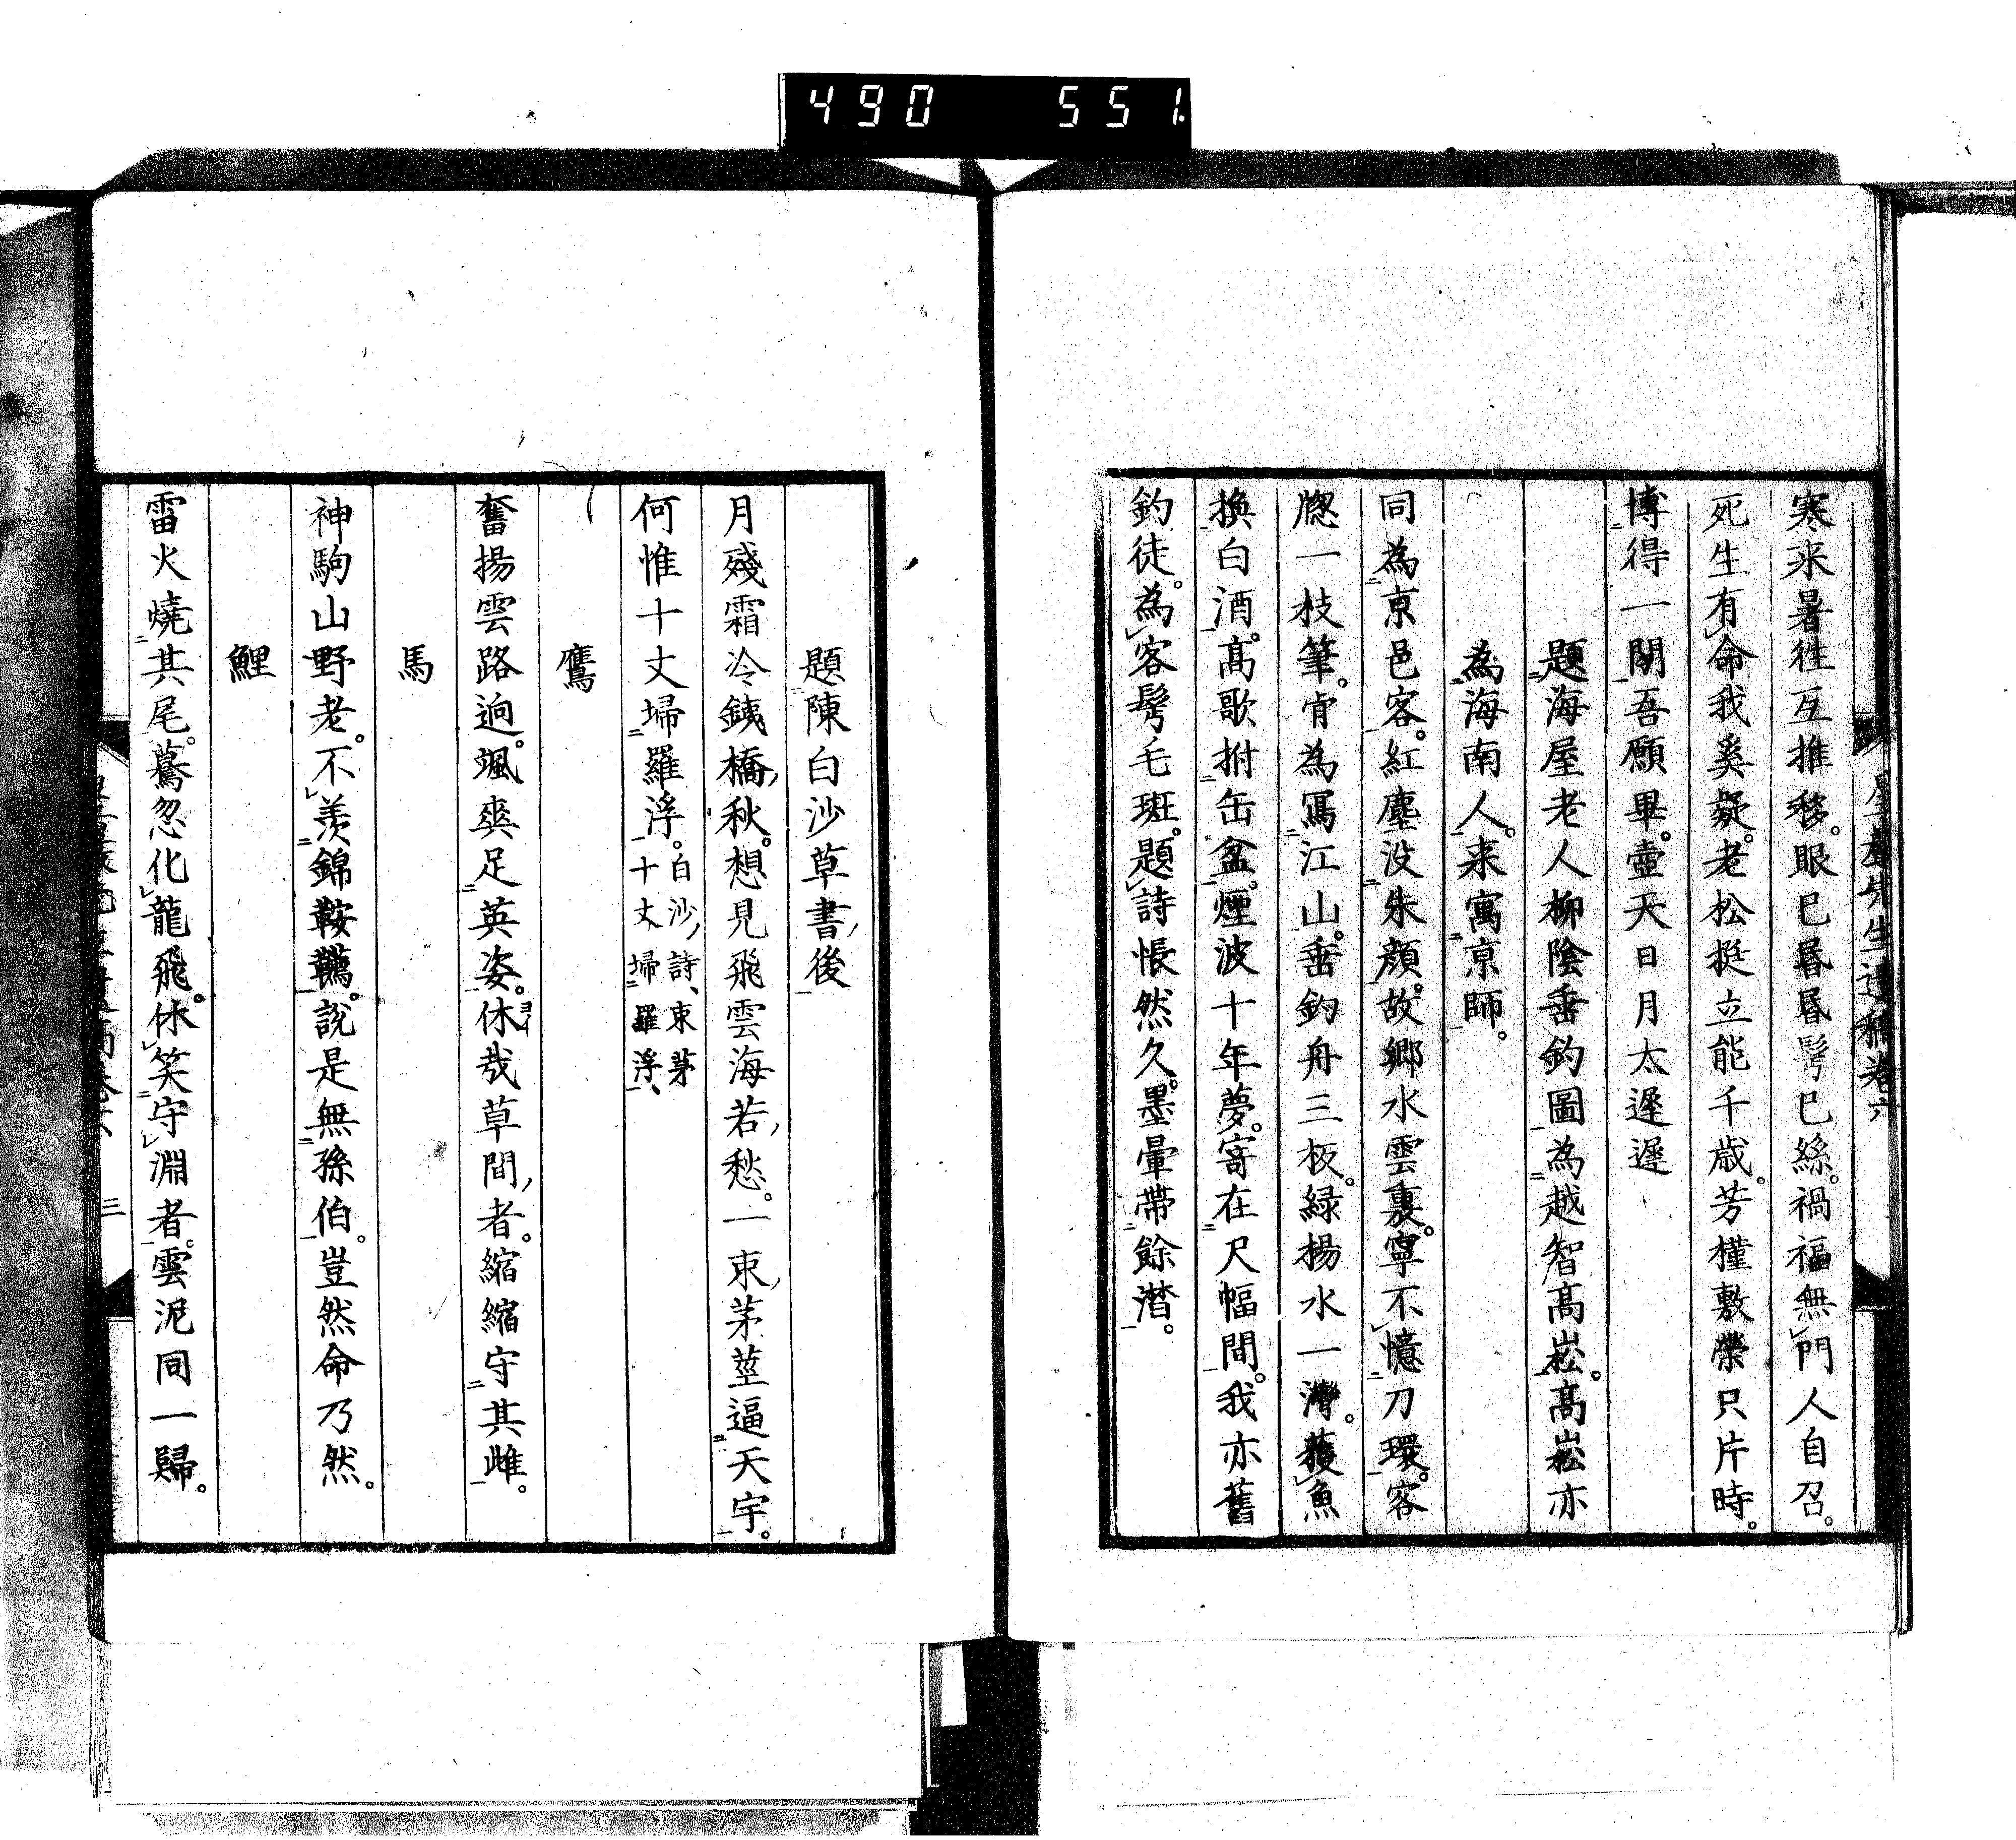 490 551
寒来暑徃互推移。眼已昏昏髩已絲。禍福無門人自召。
死生有命我奚疑。老松挺立能千歳。芳槿敷榮只片時。
博得一閒吾願畢。壷天日月太遲遲
題海屋老人柳陰垂釣圖為越智高崧。高崧亦
為海南人。来寓京師。
同為京邑客。紅塵没朱顔。故郷水雲裏。寧不憶刀環。客
窓一枝筆。肯為寫江山。垂釣舟三板。緑楊水一灣。獲魚
換白酒。高歌拊缶盆。煙波十年夢。寄在尺幅間。我亦舊
釣徒。為客髩毛斑。題詩悵然久。墨暈帯餘潸。
題陳白沙草書後
月殘霜冷銕橋秋。想見飛雲海若愁。一束茅莖逼天宇。
何惟十丈埽羅浮。白沙詩、束茅
十丈埽羅浮、
鷹
奮揚雲路迥。颯爽足英姿。休哉草間者。縮縮守其雌。
馬
神駒山野老。不羨錦鞍韉。説是無孫伯。豈然命乃然。
鯉
雷火燒其尾。驀忽化龍飛。休笑守淵者。雲泥同一歸。
三